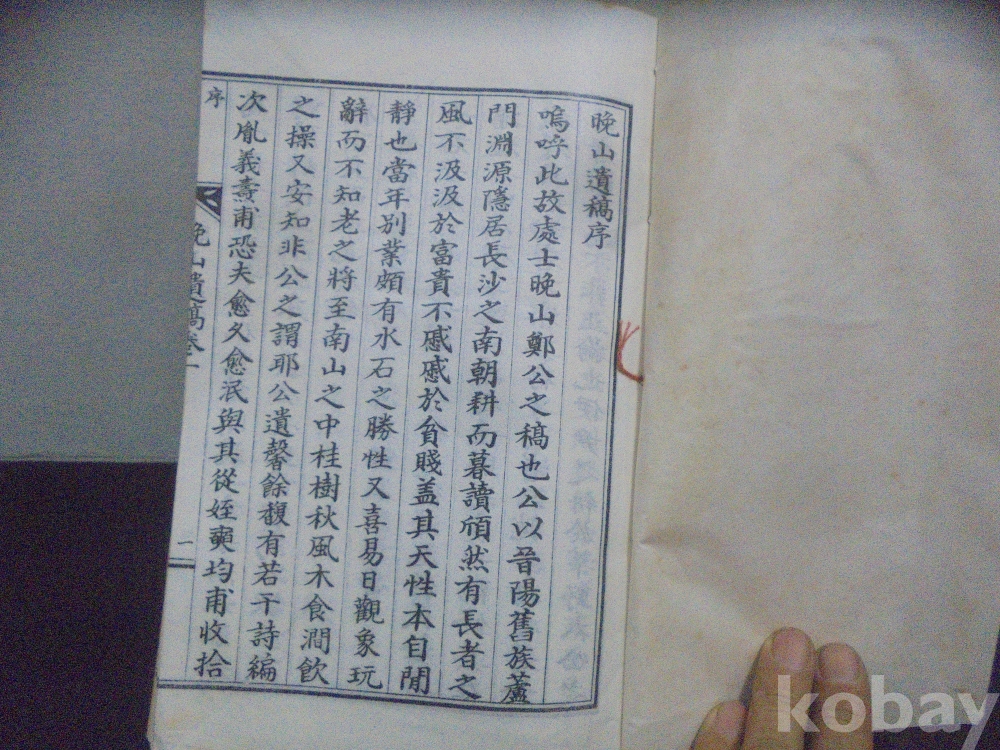 晩山遺稿序
嗚呼此故處士晩山鄭公之稿也公以晉陽舊族蘆
門淵源隱居長沙之南朝耕而暮讀頎然有長者之
風不汲汲於富貴不慼慼於貧賤盖其天性本自閒
靜也當年別業頗有水石之勝性又喜易日觀象玩
辭而不知老之將至南山之中桂樹秋風木食澗飮
之操又安知非公之謂耶公遺馨餘馥有若干詩編
次胤義壽甫恐夫愈久愈泯與其從姪奭均甫收拾
序
晩山遺稿卷一
一
kobay